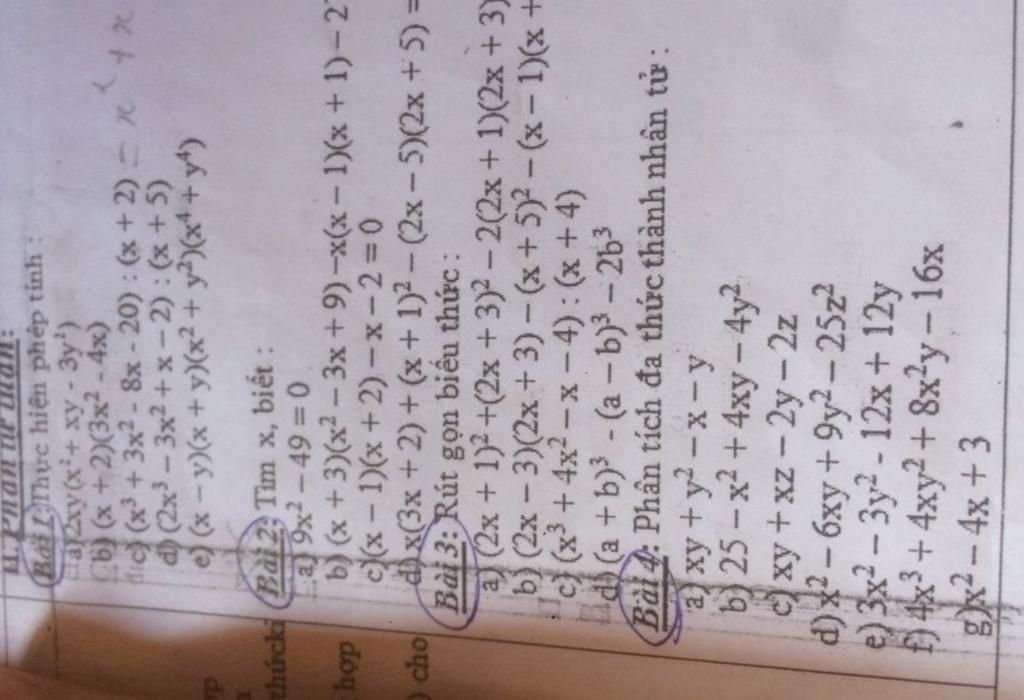 II. Phần tự luận:
Bài 1: Thực hiện phép tính :
a) 2xy(x² + xy - 3y²)
b) (x + 2)(3x² - 4x)
c) (x³ + 3x² - 8x - 20) : (x + 2) = x² + x
d) (2x³ – 3x² + x – 2) : (x + 5)
e) (x – y)(x + y)(x² + y²)(x⁴ + y⁴)
Bài 2: Tìm x, biết :
a) 9x² – 49 = 0
b) (x + 3)(x² – 3x + 9) –x(x – 1)(x + 1) – 2
c) (x – 1)(x + 2) – x – 2 = 0
d) x(3x + 2) + (x + 1)² – (2x – 5)(2x + 5) =
Bài 3: Rút gọn biểu thức :
a) (2x + 1)² +(2x + 3)² – 2(2x + 1)(2x + 3)
b) (2x – 3)(2x + 3) – (x + 5)² – (x – 1)(x +
c) (x³ + 4x² – x – 4) : (x + 4)
d) (a + b)³ - (a – b)³ – 2b³
Bài 4: Phân tích đa thức thành nhân tử :
a) xy + y² – x – y
b) 25 – x² + 4xy – 4y²
c) xy + xz – 2y – 2z
d) x² – 6xy + 9y² – 25z²
e) 3x² – 3y² - 12x + 12y
f) 4x³ + 4xy² + 8x²y – 16x
g) x² – 4x + 3
thức
hợp
) cho